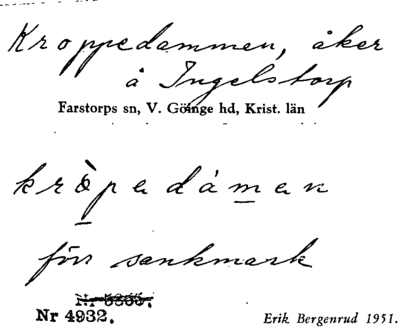 Kroppedammen, åker
å Ingelstorp
Farstorps sn, V. Göinge hd, Krist. län
krò̱padáma̱n
förr sankmark
Nr 4932.
Erik Bergenrud 1951.